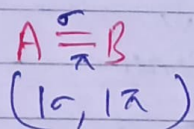 A σ═π B
(1σ, 1π)